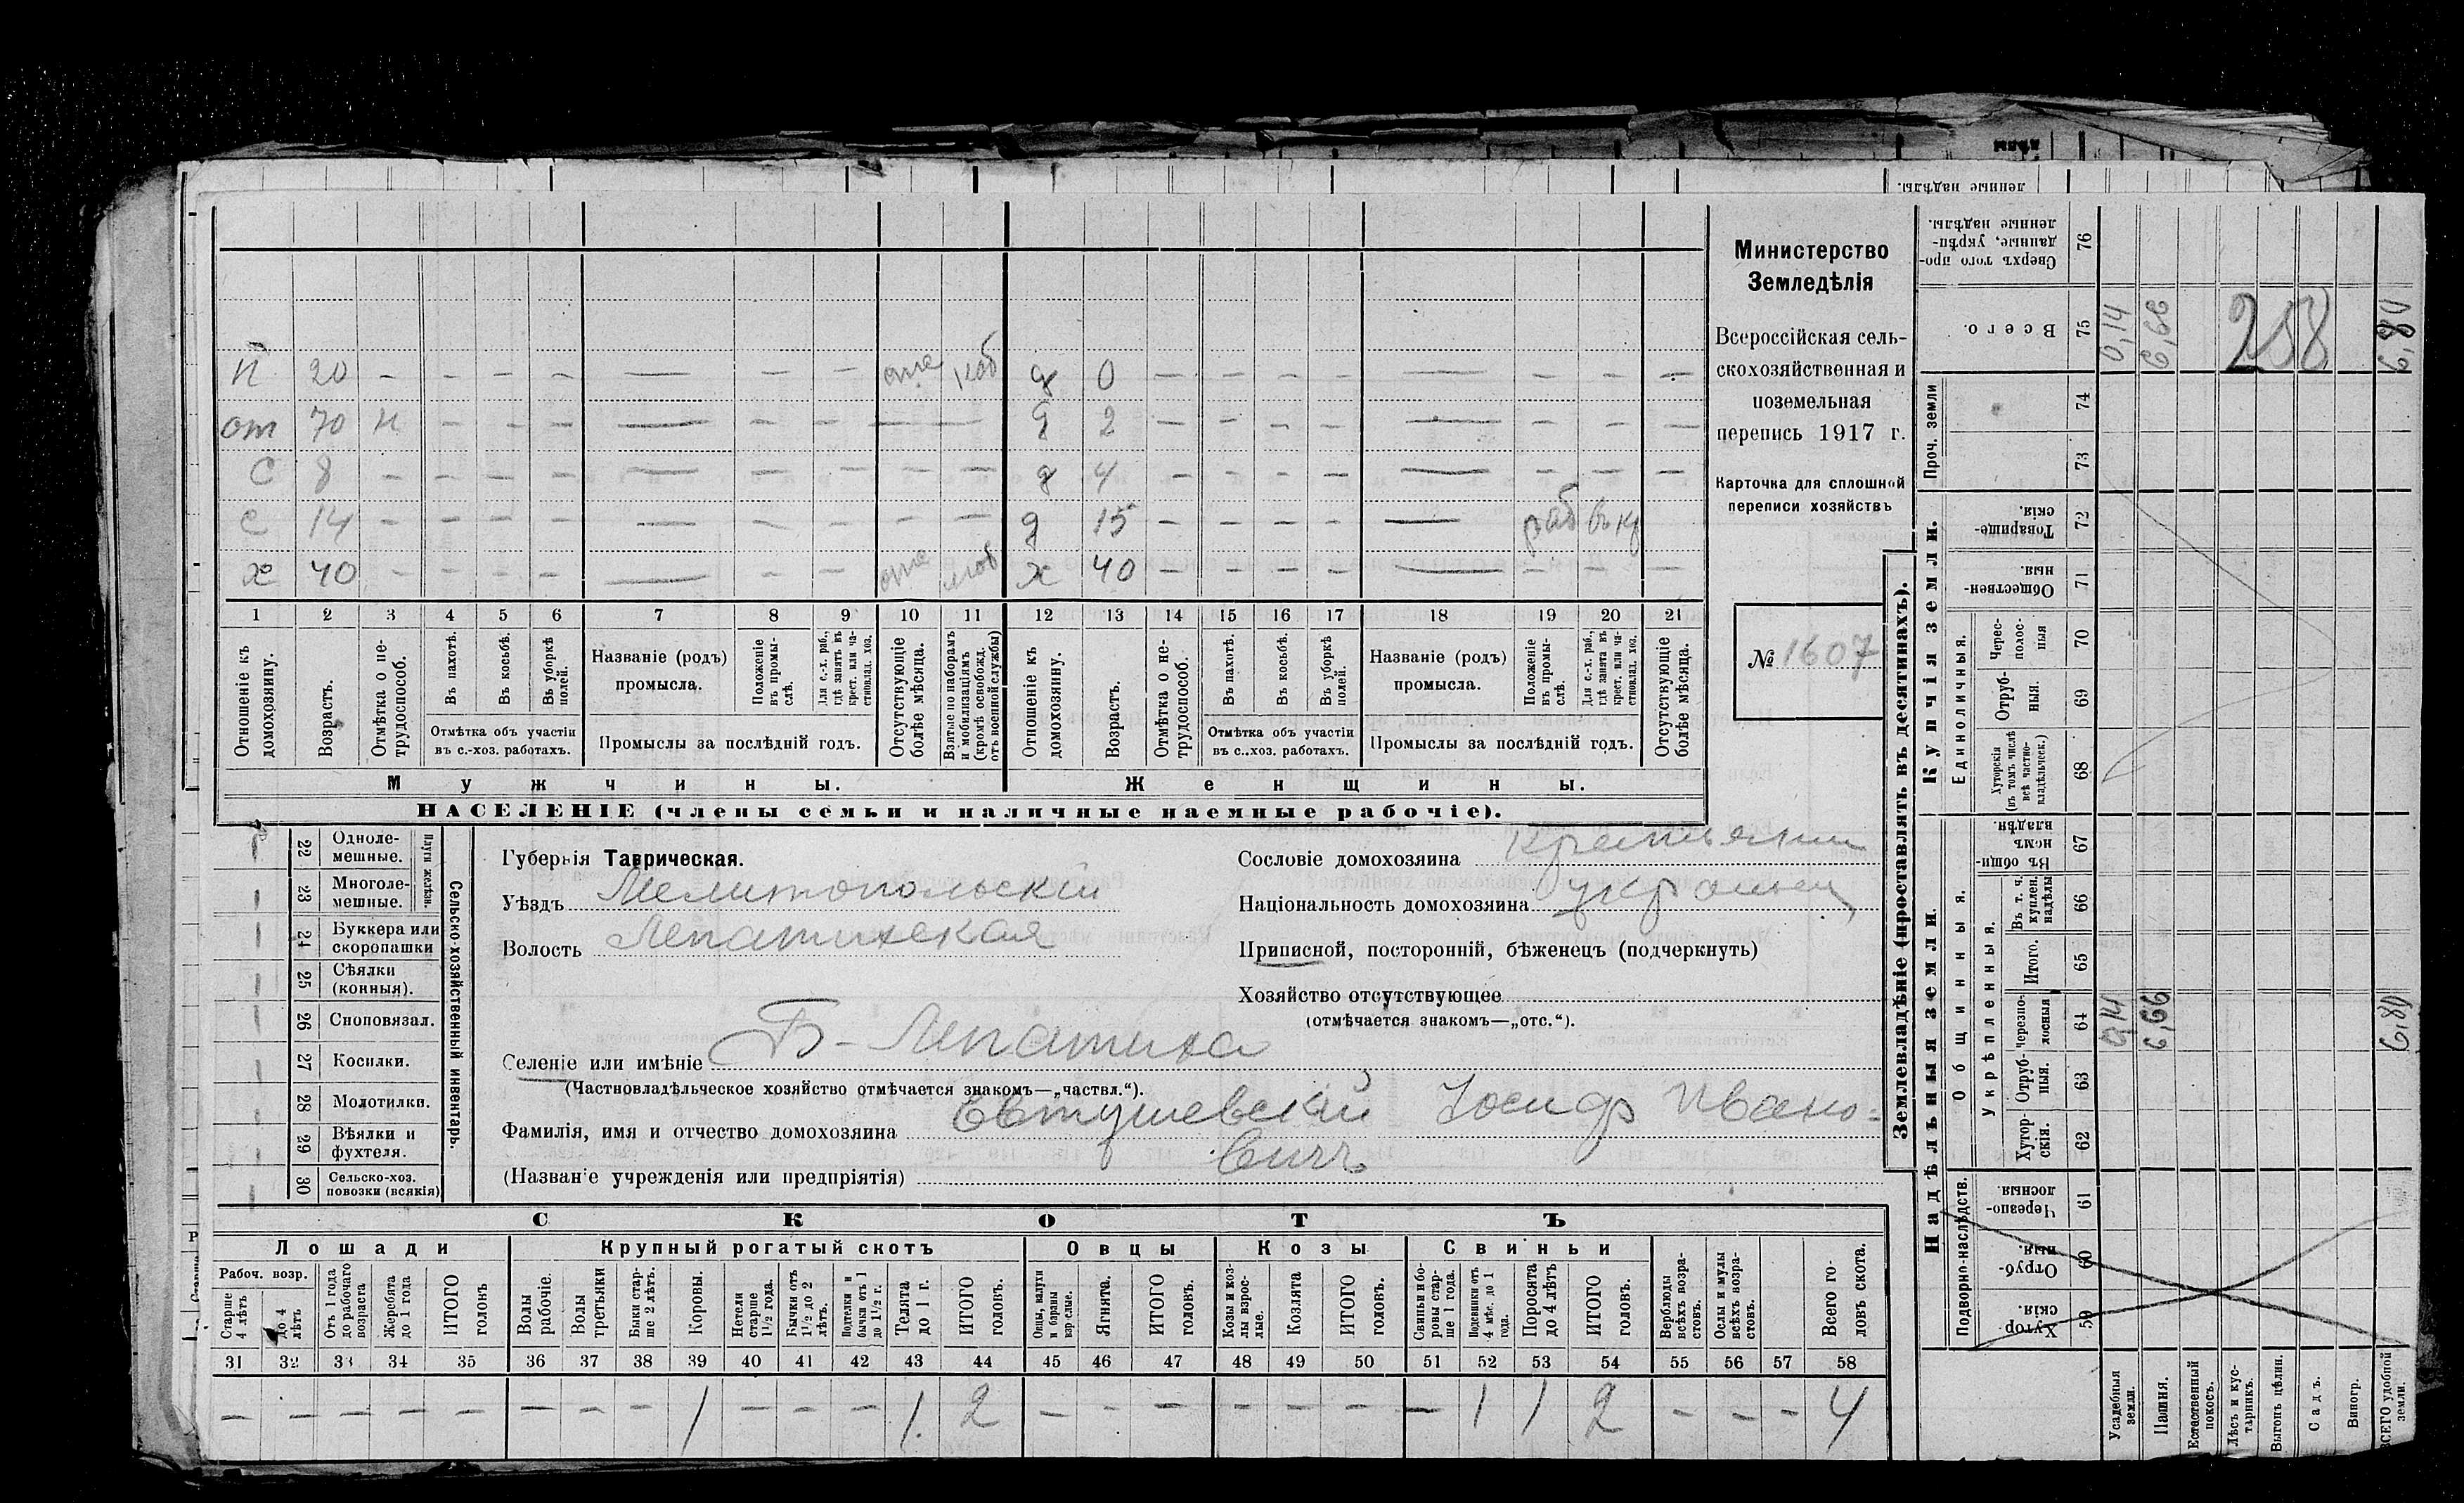 ленные надѣлы.
Министерство
Земледѣлія
Всероссійская сель-
скохозяйственная и
поземельная
перепись 1917 г.
Карточка для сплошной
переписи хозяйствъ
№ 1607
П 20 — — — — — — — — д 0 — — — — — — — —
от 70 н — — — — — — — — д 2 — — — — — — — —
с 8 — — — — — — — — — д 4 — — — — — — — —
с 14 — — — — — — — — — д 15 — — — — — раб
х 40 — — — — — — — х 40 — — — — — — — —
1 2 3 4 5 6 7 8 9 10 11 12 13 14 15 16 17 18 19 20 21
Отношеніе къ домохозяину.
Возрастъ.
Отмѣтка о не-трудоспособ.
Въ пахотѣ.
Въ косьбѣ.
Въ уборкѣ полей.
Отмѣтка объ участіи
въ с.-хоз. работахъ.
Названіе (родъ)
промысла.
Положеніе въ промы-слѣ.
Для с.-х. раб., гдѣ занятъ въ крест. или ча-стновлад. хоз.
Промыслы за послѣдній годъ.
Отсутствующіе болѣе мѣсяца.
Взятые по наборамъ и мобилизаціямъ (кромѣ освобожд. отъ военной службы)
Отношеніе къ домохозяину.
Возрастъ.
Отмѣтка о не-трудоспособ.
Въ пахотѣ.
Въ косьбѣ.
Въ уборкѣ полей.
Отмѣтка объ участіи
въ с.-хоз. работахъ.
Названіе (родъ)
промысла.
Положеніе въ промы-слѣ.
Для с.-х. раб., гдѣ занята въ крест. или ча-стновлад. хоз.
Промыслы за послѣдній годъ.
Отсутствующіе болѣе мѣсяца.
Мужчины.
Женщины.
НАСЕЛЕНІЕ (члены семьи и наличные наемные рабочіе).
Сельско-хозяйственный инвентарь.
Плуги желѣзн.
22 Одноле-мешные.
23 Многоле-мешные.
24 Буккера или скоропашки
25 Сѣялки (конныя).
26 Сноповязал.
27 Косилки.
28 Молотилки.
29 Вѣялки и фухтеля.
30 Сельско-хоз. повозки (всякія)
Губернія Таврическая.
Уѣздъ Мелитопольскій
Волость Лепатихская
Сословіе домохозяина крестьянин
Національность домохозяина украинец
Приписной, посторонній, бѣженецъ (подчеркнуть)
Хозяйство отсутствующее
(отмѣчается знакомъ—„отс.“).
Селеніе или имѣніе Б-Лепатиха
(Частновладѣльческое хозяйство отмѣчается знакомъ—„частвл.“).
Фамилія, имя и отчество домохозяина Евтушевскій Іосиф Ивано=
вичъ
(Названіе учрежденія или предпріятія)
СКОТЪ
Лошади
Крупный рогатый скотъ
Овцы
Козы
Свиньи
Рабоч. возр.
Старше 4 лѣтъ
До 4 лѣтъ
Отъ 1 года до рабочаго возраста
Жеребята до 1 года
ИТОГО головъ
Волы рабочіе.
Волы третьяки
Быки стар-ше 2 лѣтъ.
Коровы.
Нетели старше 1 1/2 года.
Бычки отъ 1 1/2 до 2 лѣтъ.
Подтелки и бычки отъ 1 до 1 1/2 г.
Телята до 1 г.
ИТОГО головъ.
Овцы, валухи и бараны взрослые.
Ягнята.
ИТОГО головъ.
Козы и коз-лы взрос-лые.
Козлята
ИТОГО головъ.
Свиньи и бо-ровы стар-ше 1 года.
Подсвинки отъ 4 мѣс. до 1 года.
Поросята до 4 лѣтъ
ИТОГО головъ.
Верблюды всѣхъ возра-стовъ.
Ослы и мулы всѣхъ возра-стовъ.
Всего го-ловъ скота.
31 32 33 34 35 36 37 38 39 40 41 42 43 44 45 46 47 48 49 50 51 52 53 54 55 56 57 58
— — — — — — — — 1 — — — 1. 2 — — — — — — — 1 1 2 — — — 4
Землевладѣніе (проставлять въ десятинахъ).
Надѣльныя земли.
Купчія земли.
Проч. земли
Подворно-наслѣдств.
Общинныя.
Укрѣпленныя.
Единоличныя.
Сверхъ того про-данные, укрѣп-ленные надѣлы.
76
Всего.
75 0,14 6,66 258 6,80
74
73
Товарище-скія.
72
Обществен-ныя.
71
Черес-полос-ныя
70
Отруб-ныя.
69
Хуторскія (въ томъ числѣ всѣ частно-владѣльческ.)
68
Въ общи-номъ владѣн.
67
Въ т. ч. куплен. надѣлы
66
Итого.
65
черезпо-лосныя
64 0,14 6,66 6,80
Отруб-ныя.
63
Хутор-скія.
62
Черезпо-лосныя
61
Отруб-ныя.
60
Хутор-скія.
59
Усадебныя земли.
Пашня.
Естественный покосъ.
Лѣсъ и кус-тарникъ.
Выгонъ цѣлин.
Садъ.
Виногр.
ВСЕГО удобной земли.